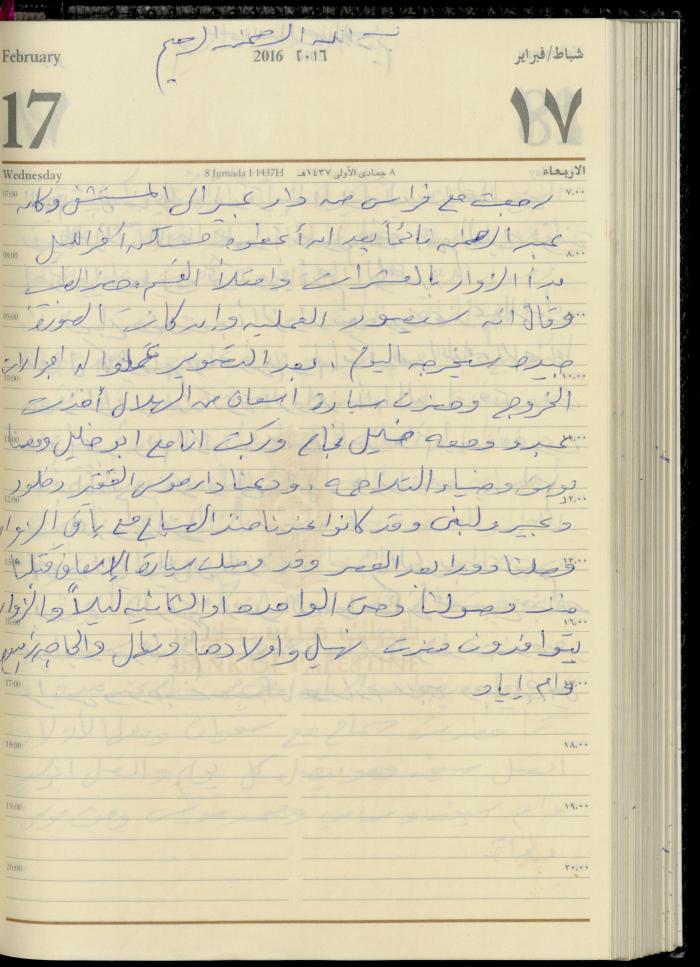 بسم الله الرحمن الرحيم
February 2016 ٢٠١٦ شباط/فبراير
17 ١٧
Wednesday 8 Jumada I 1437H ٨ جمادى الأولى ١٤٣٧هـ الاربعاء
07:00 رجعت مع فراس من دار عبير الى المستشفى وكان ٧,٠٠
عبد الرحمن نائماً بعد ان أعطوه مسكن آخر الليل
08:00 ٨,٠٠
بدأ الزوار بالعشرات وامتلأ القسم وحضر الطبيب
09:00 وقال انه سيصور العملية وان كانت الصورة
جيدة سنخرجه اليوم . بعد التصوير عملوا له اجراءات
10:00 ١٠,٠٠
الخروج وحضرت سيارة اسعاف من الهلال أخذت
11:00 عبد ومعه خليل نجاح وركبت انا مع ابو خليل ومعنا
يوسف وضياء التلاحمه . ودعنا دار موسى الفقير وخلود
12:00 ١٢,٠٠
وعبير ولبنى وقد كانوا عندنا منذ الصباح مع باقي الزوار
وصلنا دورا بعد العصر وقد وصلت سيارة الإسعاف قبلنا
منذ وصولنا وحتى الواحده او الثانيه ليلاً والزوار
١٦,٠٠
يتوافدون حضرت نهيل واولادها ونوال والحاجه
17:00 وام إياد
18:00 ١٨,٠٠
19:00 ١٩,٠٠
20:00 ٢٠,٠٠